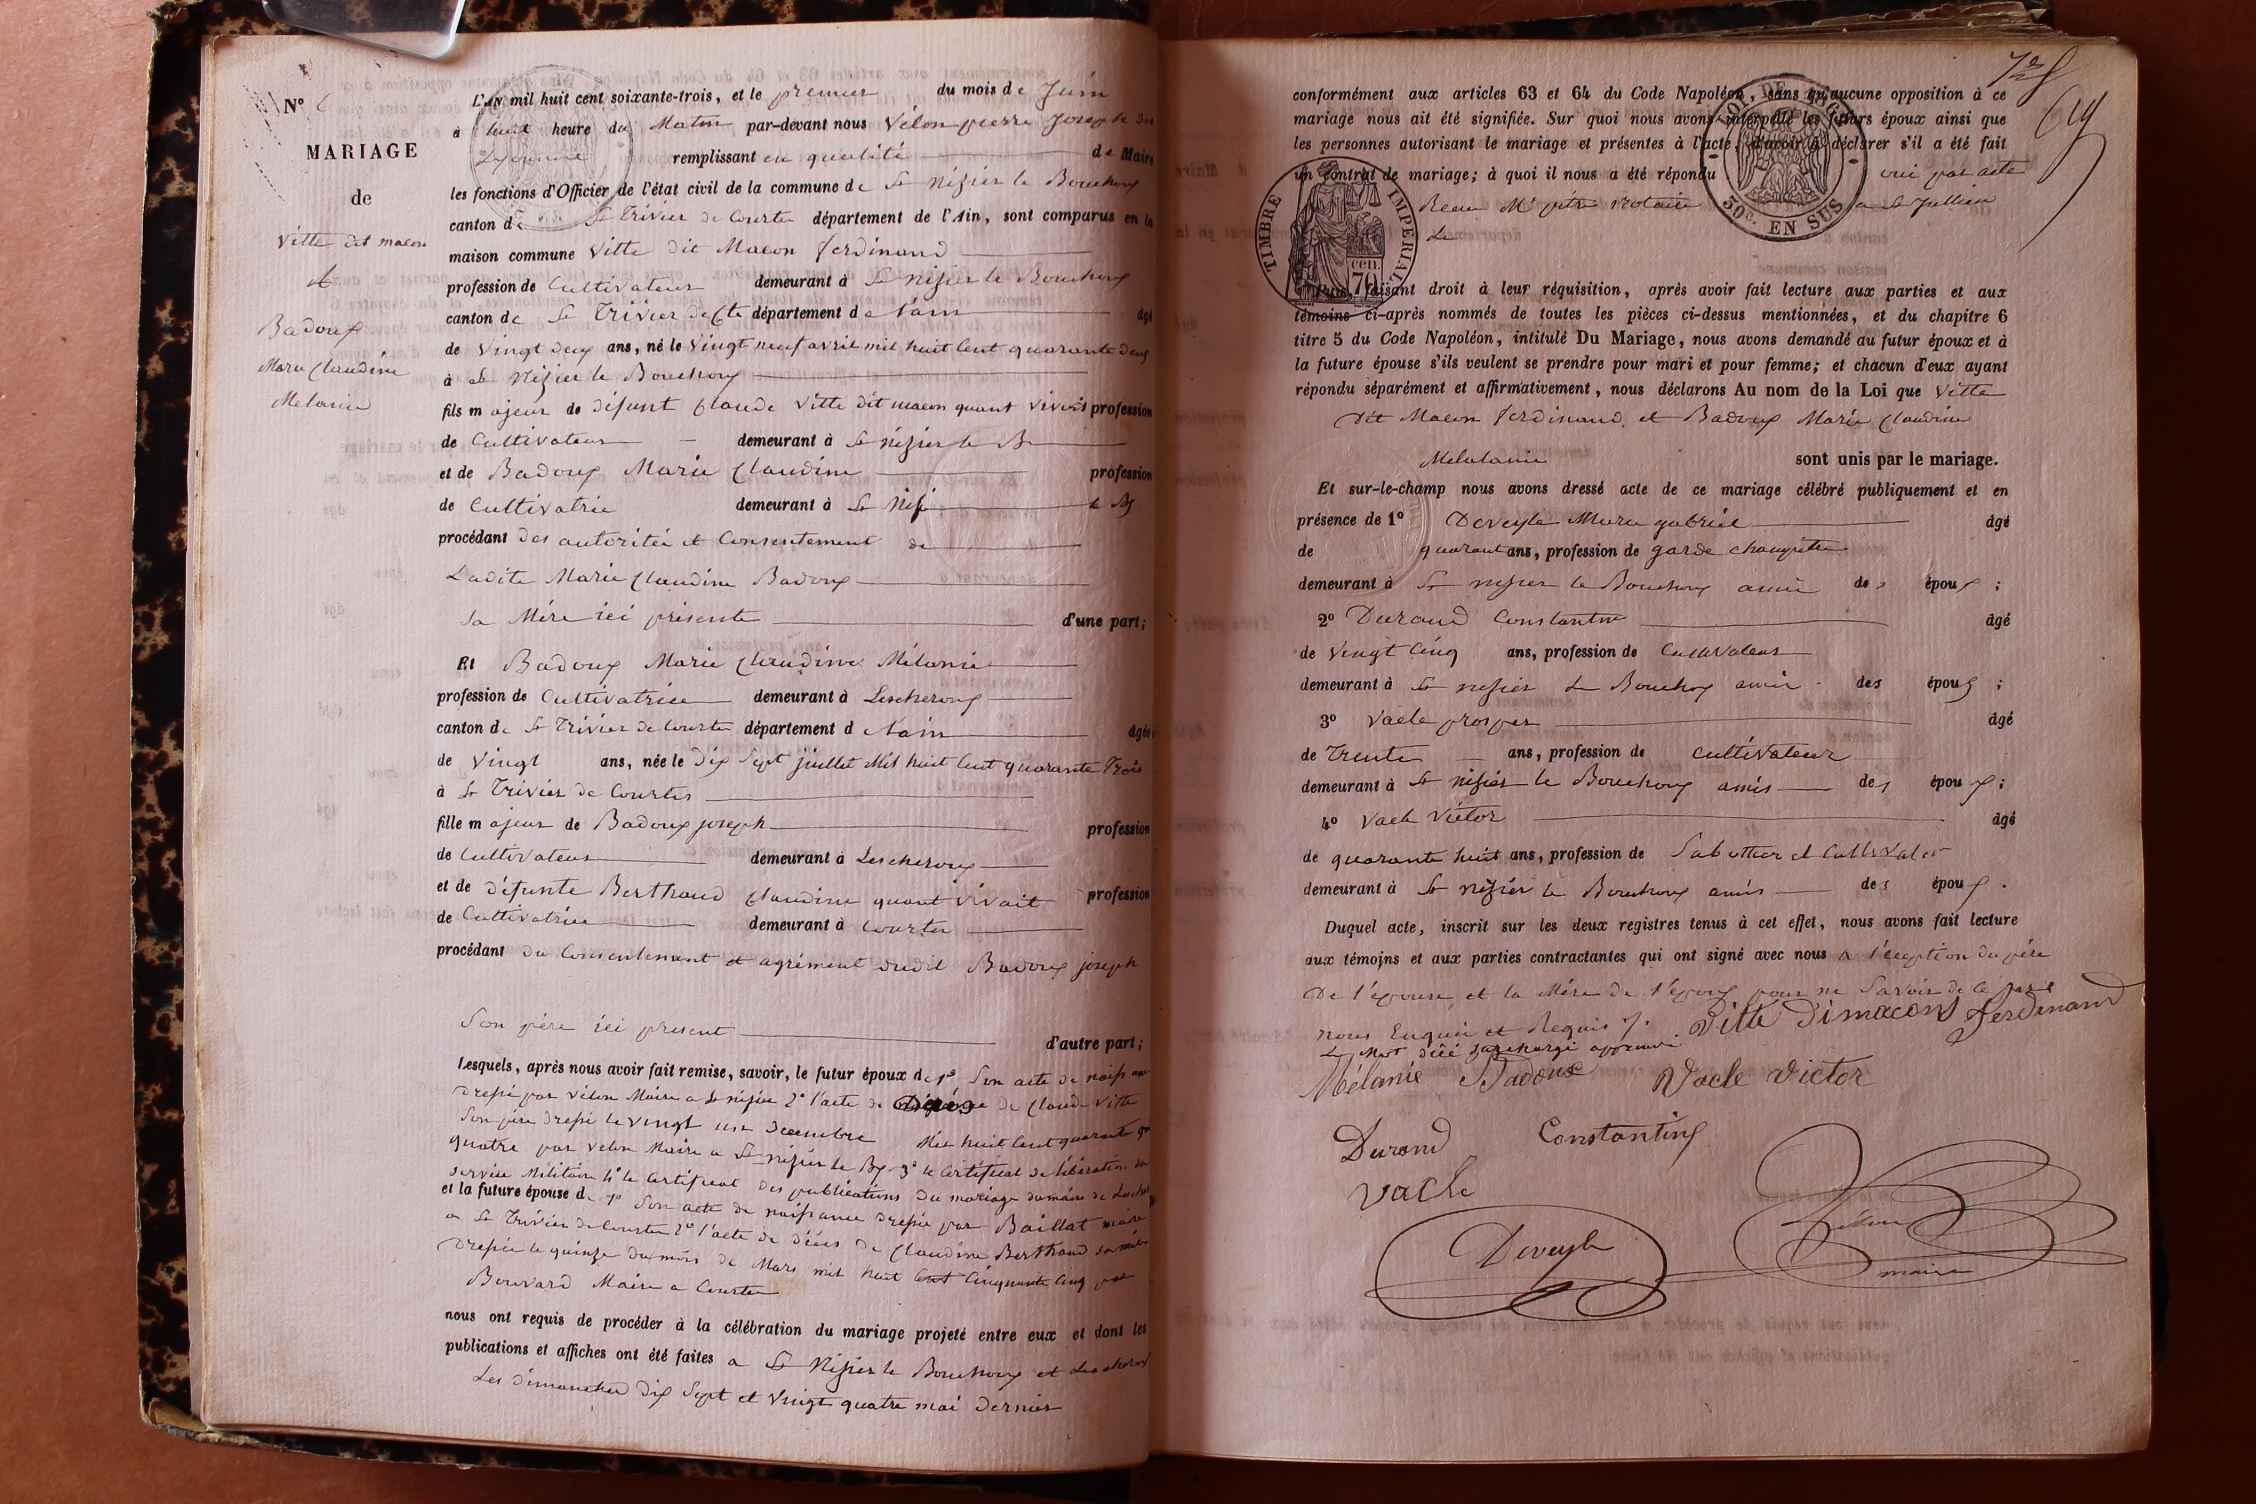 N° 6
MARIAGE
de
Vitte dit macon
et
Badoux
Marie Claudine
Melanie
L'AN mil huit cent soixante-trois, et le premier du mois de Juin
à huit heure du Matin par-devant nous Vélon pierre Joseph
remplissant en qualité de Maire
les fonctions d'Officier de l'état civil de la commune de St Nizier le Bouchoux
canton de St Trivier de Courtes département de l'Ain, sont comparus en la
maison commune Vitte dit Macon ferdinand
profession de Cultivateur demeurant à St Nizier le Bouchoux
canton de St Trivier de Cte département de l'ain âgé
de Vingt deux ans, né le Vingt neuf avril mil huit Cent quarante deux
à St Nizier le Bouchoux
fils majeur de défunt Claude Vitte dit macon quant vivait profession
de Cultivateur demeurant à St nizier le B
et de Badoux Marie Claudine profession
de Cultivatrice demeurant à St Nizi le Bx
procédant des autorités et Consentement de
Ladite Marie Claudine Badoux
Sa Mère ici présente d'une part;
Et Badoux Marie Claudine Mélanie
profession de Cultivatrice demeurant à Lescheroux
canton de St Trivier de Courtes département de l'ain âgée
de Vingt ans, née le dix Sept juillet Mil huit Cent quarante Trois
à St Trivier de Courtes
fille majeur de Badoux joseph profession
de Cultivateur demeurant à Lescheroux
et de défunte Berthaud Claudine quant vivait profession
de Cultivatrice demeurant à Courtes
procédant du Consentement et agrément dudit Badoux joseph
Son père ici present d'autre part;
Lesquels, après nous avoir fait remise, savoir, le futur époux de 1° Son acte de naissance
dressé par vélon Maire a St nizier 2° l'acte de décès de Claude Vitte
Son père dressé le vingt un decembre Mil huit Cent quarante
quatre par velon Maire a St nizier le Bx 3° le Certificat de libération du
service Militaire 4° le Certificat des publications du mariage du maire de
et la future épouse de 1° Son acte de naissance dressé par Baillat maire
a St Trivier de Courtes 2° l'acte de décès de Claudine Berthaud sa mère
dressée le quinze du mois de Mars mil huit Cent Cinquante Cinq par
Bouvard Maire a Courtes
nous ont requis de procéder à la célébration du mariage projeté entre eux et dont les
publications et affiches ont été faites a St Nizier le Bouchoux et Lescheroux
Les dimanches dix Sept et Vingt quatre mai dernier
conformément aux articles 63 et 64 du Code Napoléon, sans qu'aucune opposition à ce
mariage nous ait été signifiée. Sur quoi nous avons interpellé les futurs époux ainsi que
les personnes autorisant le mariage et présentes à l'acte, d'avoir à déclarer s'il a été fait
un contrat de mariage; à quoi il nous a été répondu oui par acte
Recu Me notaire a St Jullien
Le
TIMBRE IMPERIAL
70 cen.
LOI DE 1862
50c. EN SUS
Puis, faisant droit à leur réquisition, après avoir fait lecture aux parties et aux
témoins ci-après nommés de toutes les pièces ci-dessus mentionnées, et du chapitre 6
titre 5 du Code Napoléon, intitulé Du Mariage, nous avons demandé au futur époux et à
la future épouse s'ils veulent se prendre pour mari et pour femme; et chacun d'eux ayant
répondu séparément et affirmativement, nous déclarons Au nom de la Loi que Vitte
Dit Macon ferdinand et Badoux Marie Claudine
Melalanie sont unis par le mariage.
Et sur-le-champ nous avons dressé acte de ce mariage célébré publiquement et en
présence de 1° Deveyle Marie gabriel âgé
de quarant ans, profession de garde champêtre
demeurant à St nizier le Bouchoux amis des époux ;
2° Durand Constantin âgé
de Vingt Cinq ans, profession de Cultivateur
demeurant à St nizier Le Bouchox amis des époux ;
3° Vacle prosper âgé
de Trente ans, profession de cultivateur
demeurant à St nizier le Bouchoux amis des époux ;
4° Vacle Victor âgé
de quarante huit ans, profession de Sabottier et Cultivater
demeurant à St nizier le Bouchoux amis des époux .
Duquel acte, inscrit sur les deux registres tenus à cet effet, nous avons fait lecture
aux témoins et aux parties contractantes qui ont signé avec nous a l'éception du père
De l'epouse et la Mère de l'epoux pour ne Savoir de ce par
nous Enquis et Requis
Le Mot décé surchargé approuvé
Vitte dimacont Ferdinand
Mélanie Badoux Vacle Victor
Durand Constantin
Vacle
Deveyle
Vélon
maire